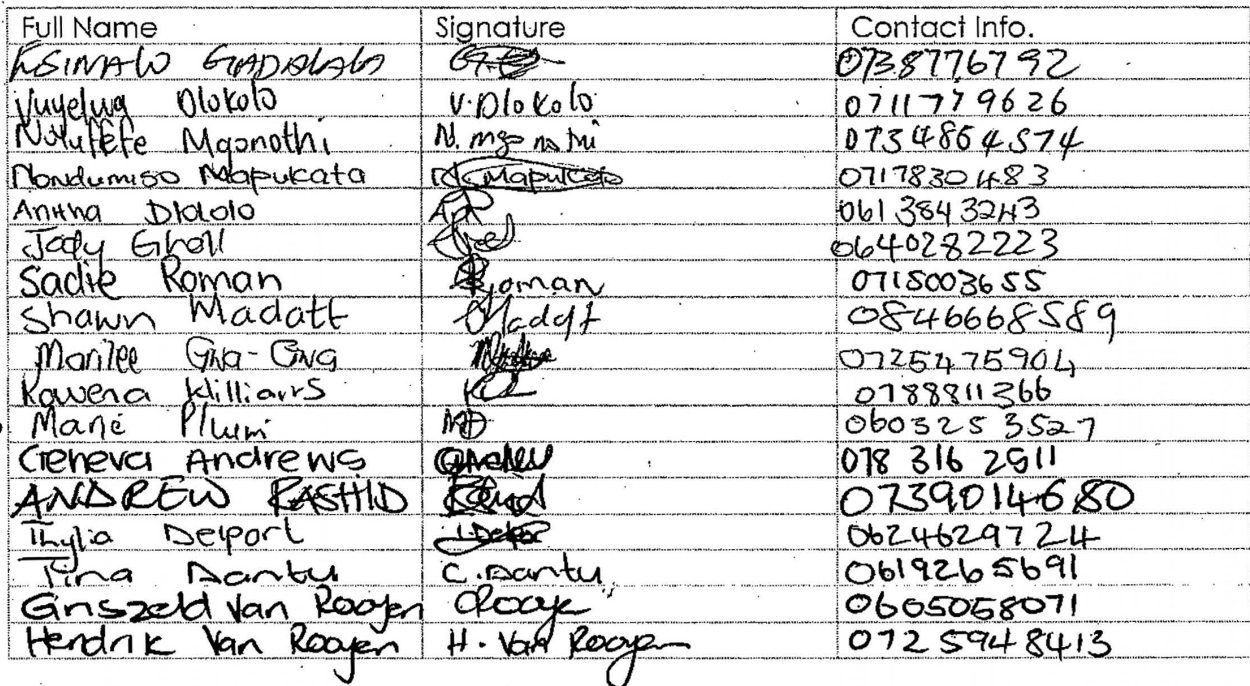 Full Name Signature Contact Info.
0738776792
Vuyelwa Dlokolo V.Dlokolo 0711779626
Mgonothi 0734864574
Nondumiso Mapukata Mapukata 0717830483
Dlololo 0613843243
Jody 0640282223
Sadie Roman Roman 0715003655
Shawn Madatt Madatt 0846668589
Marilee 0725475904
Rowena Williams 0788811366
Marie 0603253527
Geneva Andrews 078 316 2511
ANDREW RASHID 0739014680
Thylia Delport 0624629724
Tina Dantu C.Dantu 0619265691
Van Rooyen 0605058071
Hendrik Van Rooyen H. Van Rooyen 072 5948413